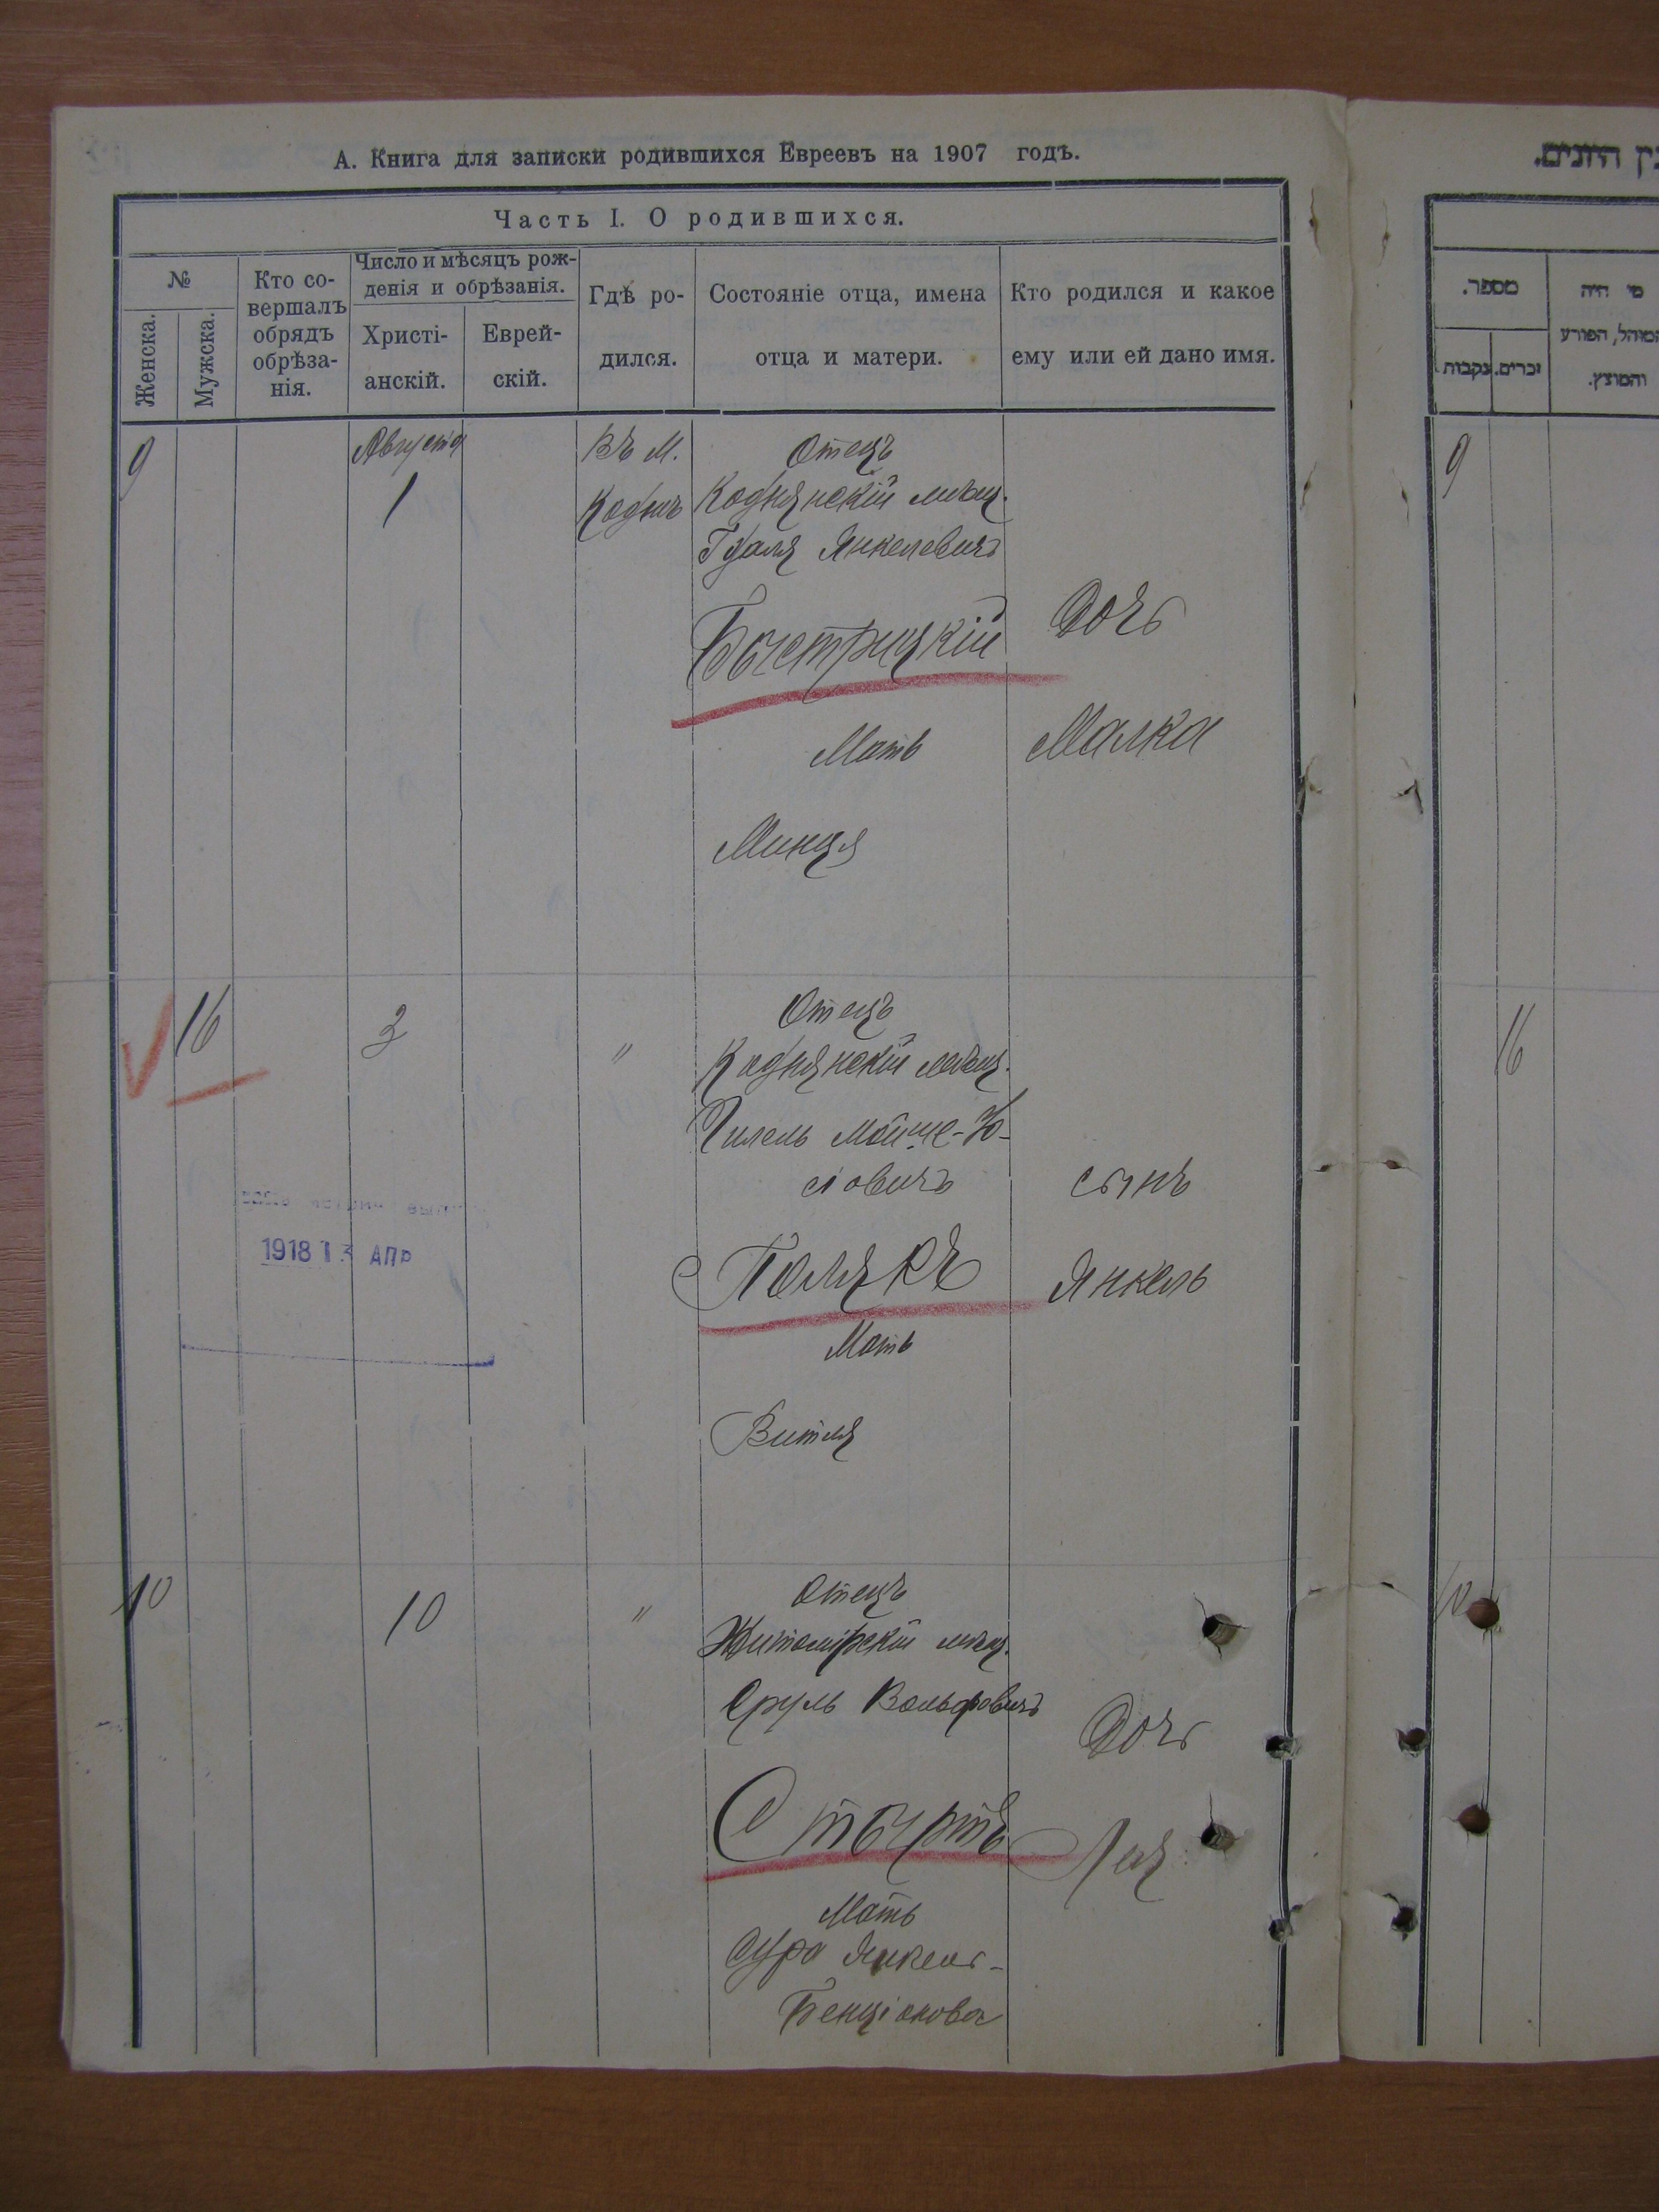 А. Книга для записки родившихся Евреевъ на 1907 годъ.
Часть I. О родившихся.
№
Женска.
Мужска.
Кто со-
вершалъ
обрядъ
обрѣза-
нія.
Число и мѣсяцъ рож-
денія и обрѣзанія.
Христі-
анскій.
Еврей-
скій.
Гдѣ ро-
дился.
Состояніе отца, имена
отца и матери.
Кто родился и какое
ему или ей дано имя.
9
Августа
1
Въ м.
Коднѣ
Отецъ
Коднянскій мѣщ.
Гдаля Янкелевичъ
Быстрицкій
Мать
Минця
Дочь
Малка
16
3
"
Отецъ
Коднянскій мѣщ.
Гилель Мойше-Іо-
Полякъ
Мать
Витля
сынъ
Янкель
1918 13 АПР
10
10
"
Отецъ
Житомірскій мѣщ.
Сруль Вольфовичъ
Стыртъ
Мать
Сура Янкель-
Бенціонова
Дочь
Лея
מספר.
נקבות
זכרים.
מי היה
המוהל, הפורע
והמוצץ.
9
16
10